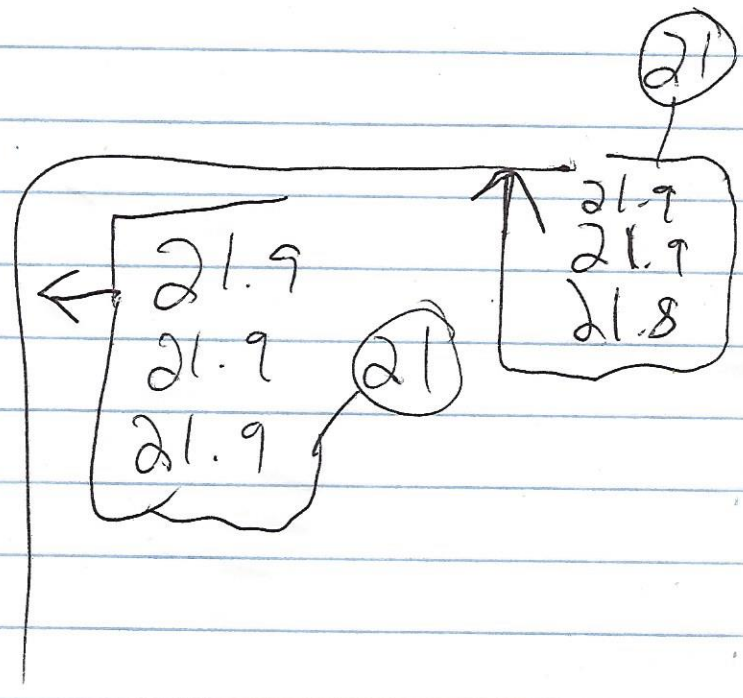 21
21.9
21.9
21.8
21.9
21.9
21.9
21